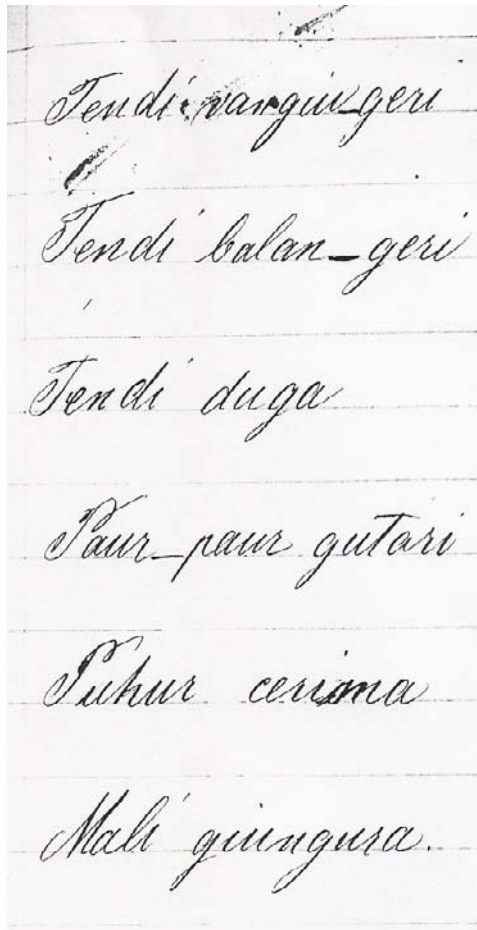 Tendi vangin-geri
Tendi balan-geri
Tendi duga
Paur-paur gutari
Puhur cerima
Mali giungura.